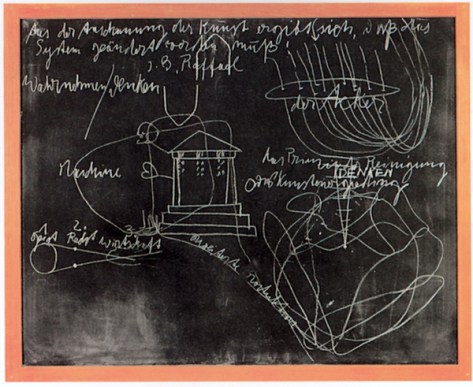 Aus der Anschauung der Kunst ergibt sich, daß das
System geändert werden muß!
z.B. Raffael
Wahrnehmen/denken
der Acker
Maschine
das Prinzip der Reinigung
DENKEN
1. 2. 3.
Geist Recht Wirtschaft